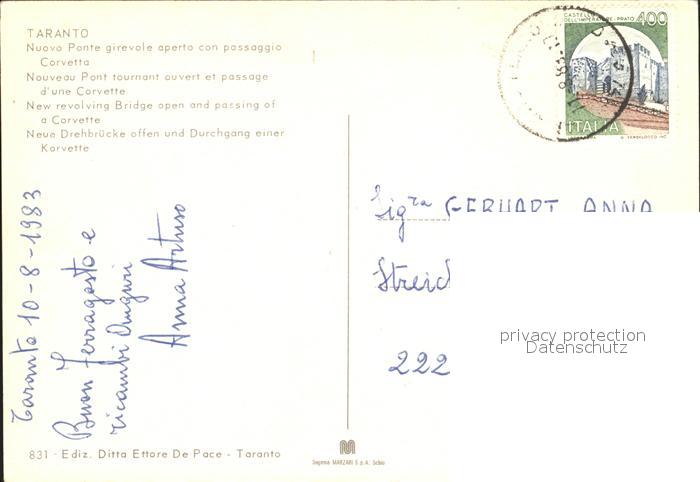 TARANTO
Nuovo Ponte girevole aperto con passaggio
Corvetta
Nouveau Pont tournant ouvert et passage
d'une Corvette
New revolving Bridge open and passing of
a Corvette
Neue Drehbrücke offen und Durchgang einer
Korvette
CASTELLO
DELL'IMPERATORE - PRATO
400
ITALIA
Taranto 10-8-1983
Buon Ferragosto e
ricambi Auguri
Anna Artuso
Sig.ra GERHART ANNA
Streid
222
privacy protection
Datenschutz
831 - Ediz. Ditta Ettore De Pace - Taranto
Segema MARZARI S.p.A. Schio